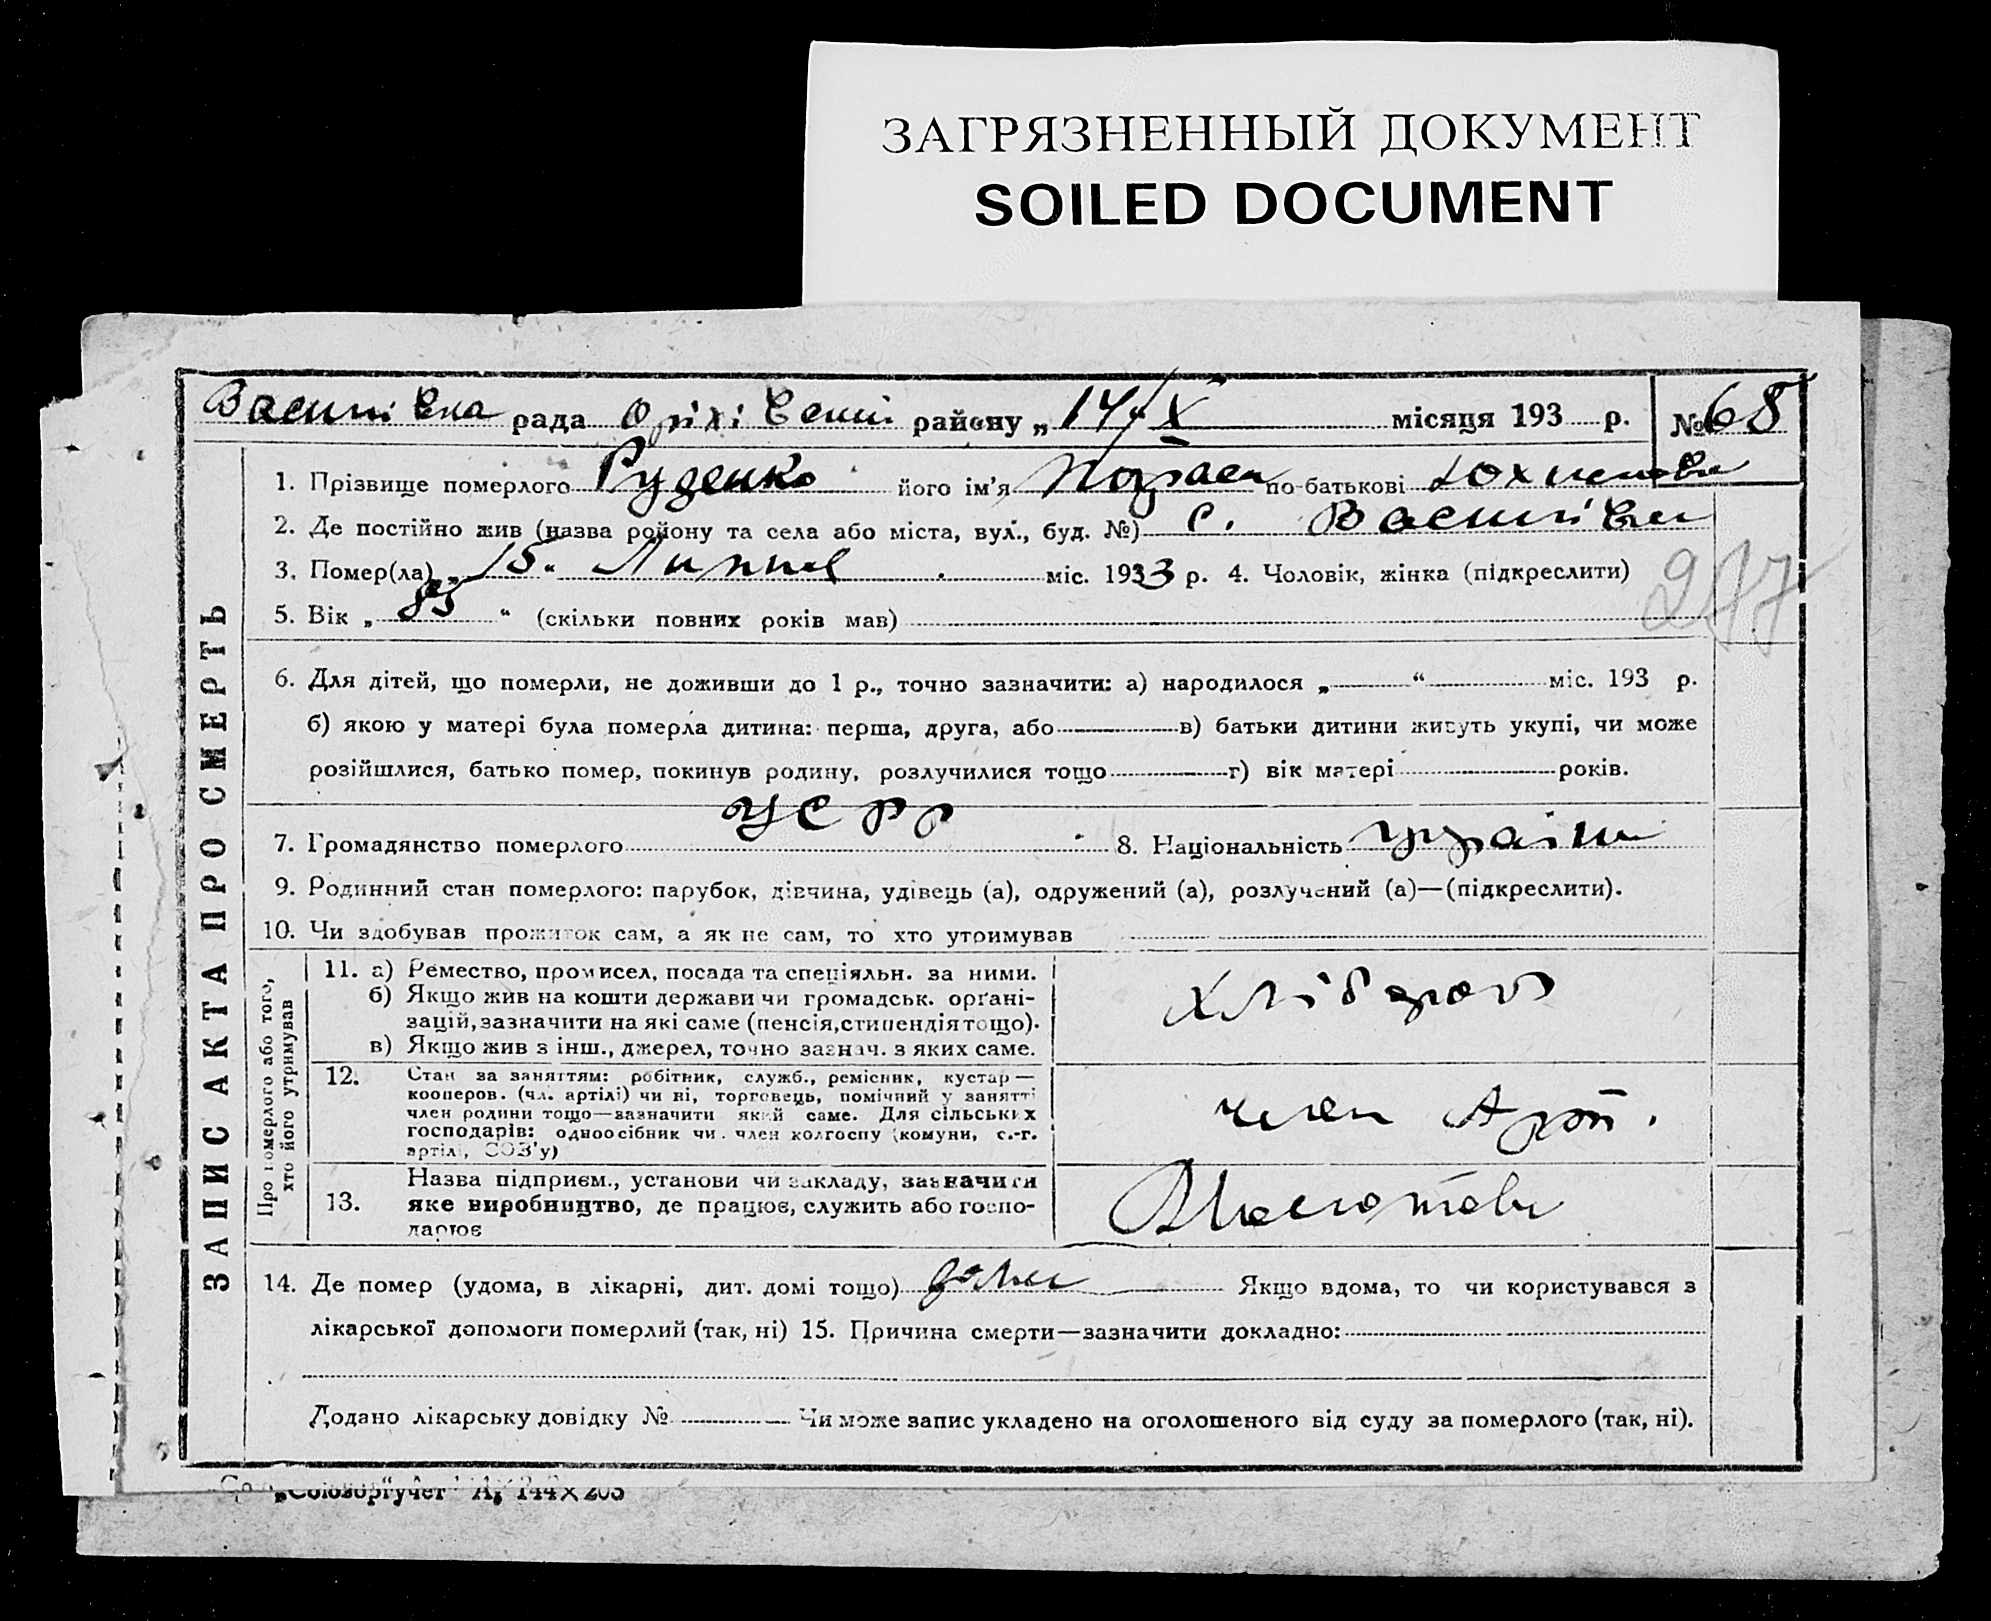 ЗАГРЯЗНЕННЫЙ ДОКУМЕНТ
SOILED DOCUMENT
Василівка рада Оріхівськ району „ 14/X місяця 193 р. № 68
ЗАПИС АКТА ПРО СМЕРТЬ
1. Прізвище померлого Руденко його ім'я по-батькові
2. Де постійно жив (назва ройону та села або міста, вул., буд. №) с. Василівка
3. Помер(ла) „ 15 “ Липня міс. 1933 р. 4. Чоловік, жінка (підкреслити)
217
5. Вік „ 85 “ (скільки повних років мав)
6. Для дітей, що померли, не доживши до 1 р., точно зазначити: а) народилося „ “ міс. 193 р.
б) якою у матері була померла дитина: перша, друга, або в) батьки дитини живуть укупі, чи може
розійшлися, батько помер, покинув родину, розлучилися тощо г) вік матері років.
7. Громадянство померлого УСРР 8. Національність україн
9. Родинний стан померлого: парубок, дівчина, удівець (а), одружений (а), розлучений (а)—(підкреслити).
10. Чи здобував прожиток сам, а як не сам, то хто утримував
Про померлого або того, хто його утримував
11. а) Ремество, промисел, посада та спеціяльн. за ними.
б) Якщо жив на кошти держави чи громадськ. орґані-
зацій, зазначити на які саме (пенсія, стипендія тощо).
в) Якщо жив з інш., джерел, точно зазнач. з яких саме.
хлібороб
12. Стан за заняттям: робітник, служб., ремісник, кустар—
кооперов. (чл. артілі) чи ні, торговець, помічний у занятті
член родини тощо—зазначити який саме. Для сільських
господарів: одноосібник чи член колгоспу (комуни, с.-г.
артілі, СОЗ'у)
член Арт.
13. Назва підприєм., установи чи закладу, зазначити
яке виробництво, де працює, служить або госпо-
дарює
14. Де помер (удома, в лікарні, дит. домі тощо) дома Якщо вдома, то чи користувався з
лікарської допомоги померлий (так, ні) 15. Причина смерти—зазначити докладно:
Додано лікарську довідку № Чи може запис укладено на оголошеного від суду за померлого (так, ні).
„Союзоргучет“ А₅ 144×203